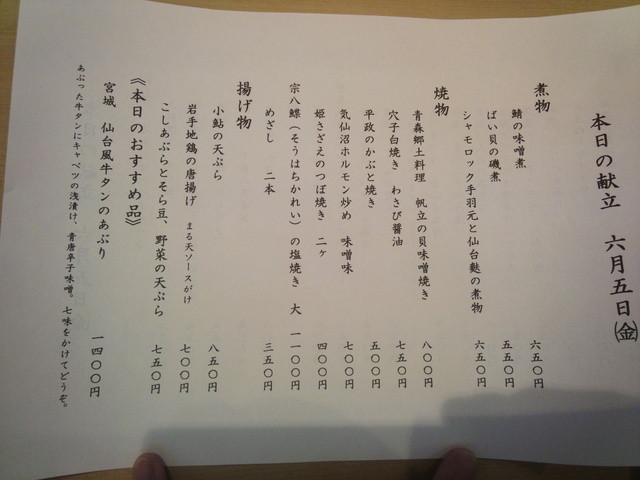 本日の献立　六月五日㈮
煮物
鯖の味噌煮　六五〇円
ばい貝の磯煮　五五〇円
シャモロック手羽元と仙台麩の煮物　六五〇円
焼物
青森郷土料理　帆立の貝味噌焼き　八〇〇円
穴子白焼き　わさび醬油　七五〇円
平政のかぶと焼き　五〇〇円
気仙沼ホルモン炒め　味噌味　七〇〇円
姫さざえのつぼ焼き　二ヶ　四〇〇円
宗八鰈（そうはちかれい）の塩焼き　大　一一〇〇円
めざし　二本　三五〇円
揚げ物
小鮎の天ぷら　八五〇円
岩手地鶏の唐揚げ　まる天ソースがけ　七〇〇円
こしあぶらとそら豆、野菜の天ぷら　七五〇円
《本日のおすすめ品》
宮城　仙台風牛タンのあぶり　一四〇〇円
あぶった牛タンにキャベツの浅漬け、青唐辛子味噌。七味をかけてどうぞ。